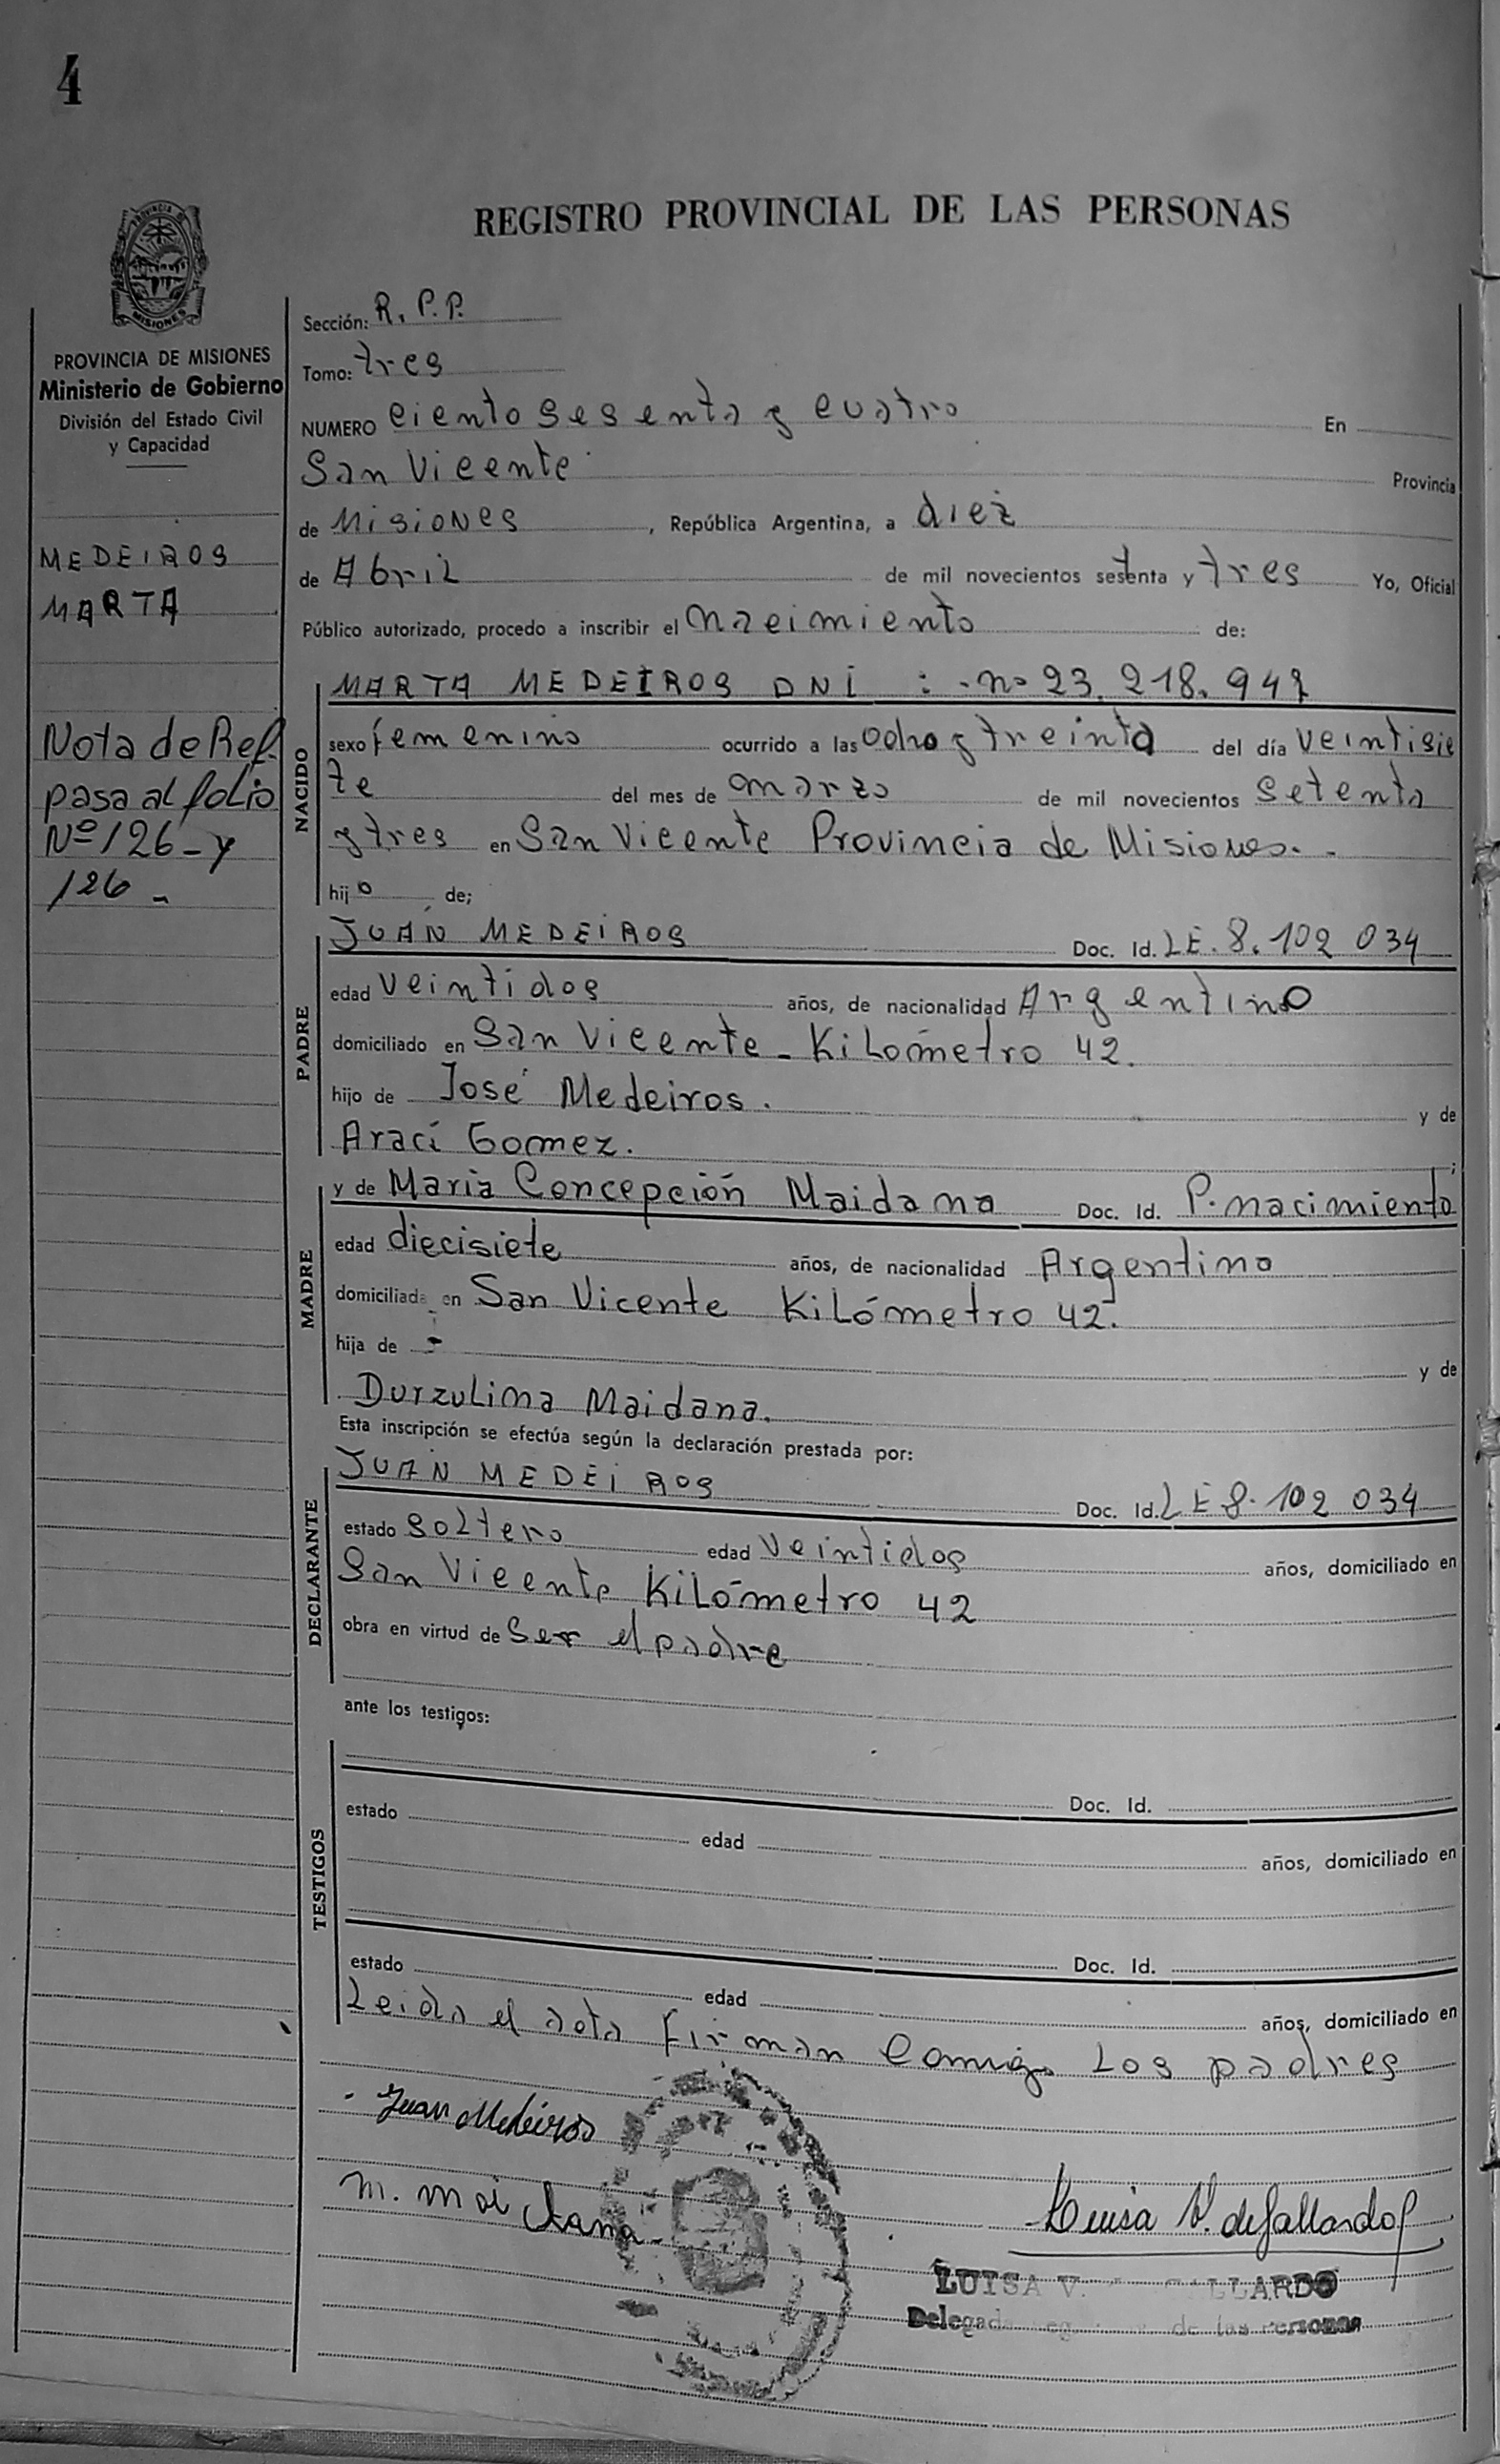 4
REGISTRO PROVINCIAL DE LAS PERSONAS
PROVINCIA DE MISIONES
MISIONES
PROVINCIA DE MISIONES
Ministerio de Gobierno
División del Estado Civil
y Capacidad
MEDEIROS
MARTA
Nota de Ref.
pasa al folio
Nº 126 - y
126 -
Sección: R. P. P.
Tomo: tres
NUMERO ciento sesenta y cuatro En
San Vicente Provincia
de Misiones, República Argentina, a diez
de Abril de mil novecientos setenta y tres Yo, Oficial
Público autorizado, procedo a inscribir el nacimiento de:
NACIDO
MARTA MEDEIROS DNI : - nº 23.218.947
sexo femenino ocurrido a las ocho y treinta del día veintisie
te del mes de marzo de mil novecientos setenta
y tres en San Vicente Provincia de Misiones. -
hijo de;
PADRE
JUAN MEDEIROS Doc. Id. LE. 8. 102 034
edad veintidos años, de nacionalidad Argentino
domiciliado en San Vicente - Kilómetro 42.
hijo de José Medeiros. y de
Araci Gomez. ;
MADRE
y de Maria Concepción Maidana Doc. Id. P. nacimiento
edad diecisiete años, de nacionalidad Argentina
domiciliada en San Vicente Kilómetro 42.
hija de - y de
Durzulina Maidana.
Esta inscripción se efectúa según la declaración prestada por:
DECLARANTE
JUAN MEDEIROS Doc. Id. LE 8. 102 034
estado soltero edad veintidos años, domiciliado en
San Vicente Kilómetro 42
obra en virtud de ser el padre
ante los testigos:
TESTIGOS
Doc. Id.
estado edad años, domiciliado en
Doc. Id.
estado edad años, domiciliado en
Leida el acta firman conmigo los padres
Juan Medeiros
M. Maidana
Luisa V. de Gallardo
LUISA V. GALLARDO
Delegada de las Personas